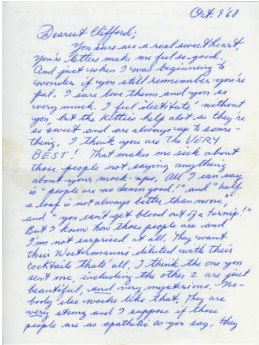 Oct. 9 '68
Dearest Clifford;
You sure are a real sweetheart.
You're letters make me feel so good.
And just when I was beginning to
wonder if you still remember you're
pal. I sure love them and you so
very much. I feel destitute without
you, but the kitties help alot as they're
so sweet and are always up to some-
thing. I think you are the VERY
BEST! That makes me sick about
those people not saying anything
about your mock-ups, All I can say
is "people are no damn good!" and "half
a loaf is not always better than none",
and "you can't get blood out of a turnip!"
But I know how those people are and
I'm not surprised at all. They want
their Westermanns diluted with their
cocktails thats all. I think the one you
sent me, including the other 2 are just
beautiful, and very mysterious. No-
body else works like that. They are
very strong and I suppose if those
people are as apathetic as you say, they